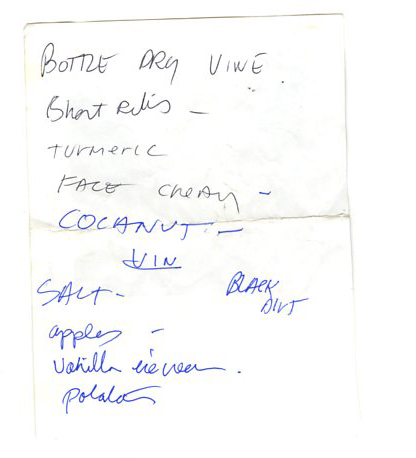 BOTTLE DRY VINE
Short Ribs -
TURMERIC
FACE CREAM -
COCANUT -
VIN
SALT -
BLACK
DIRT
apples -
Vanilla icecream.
potatoes